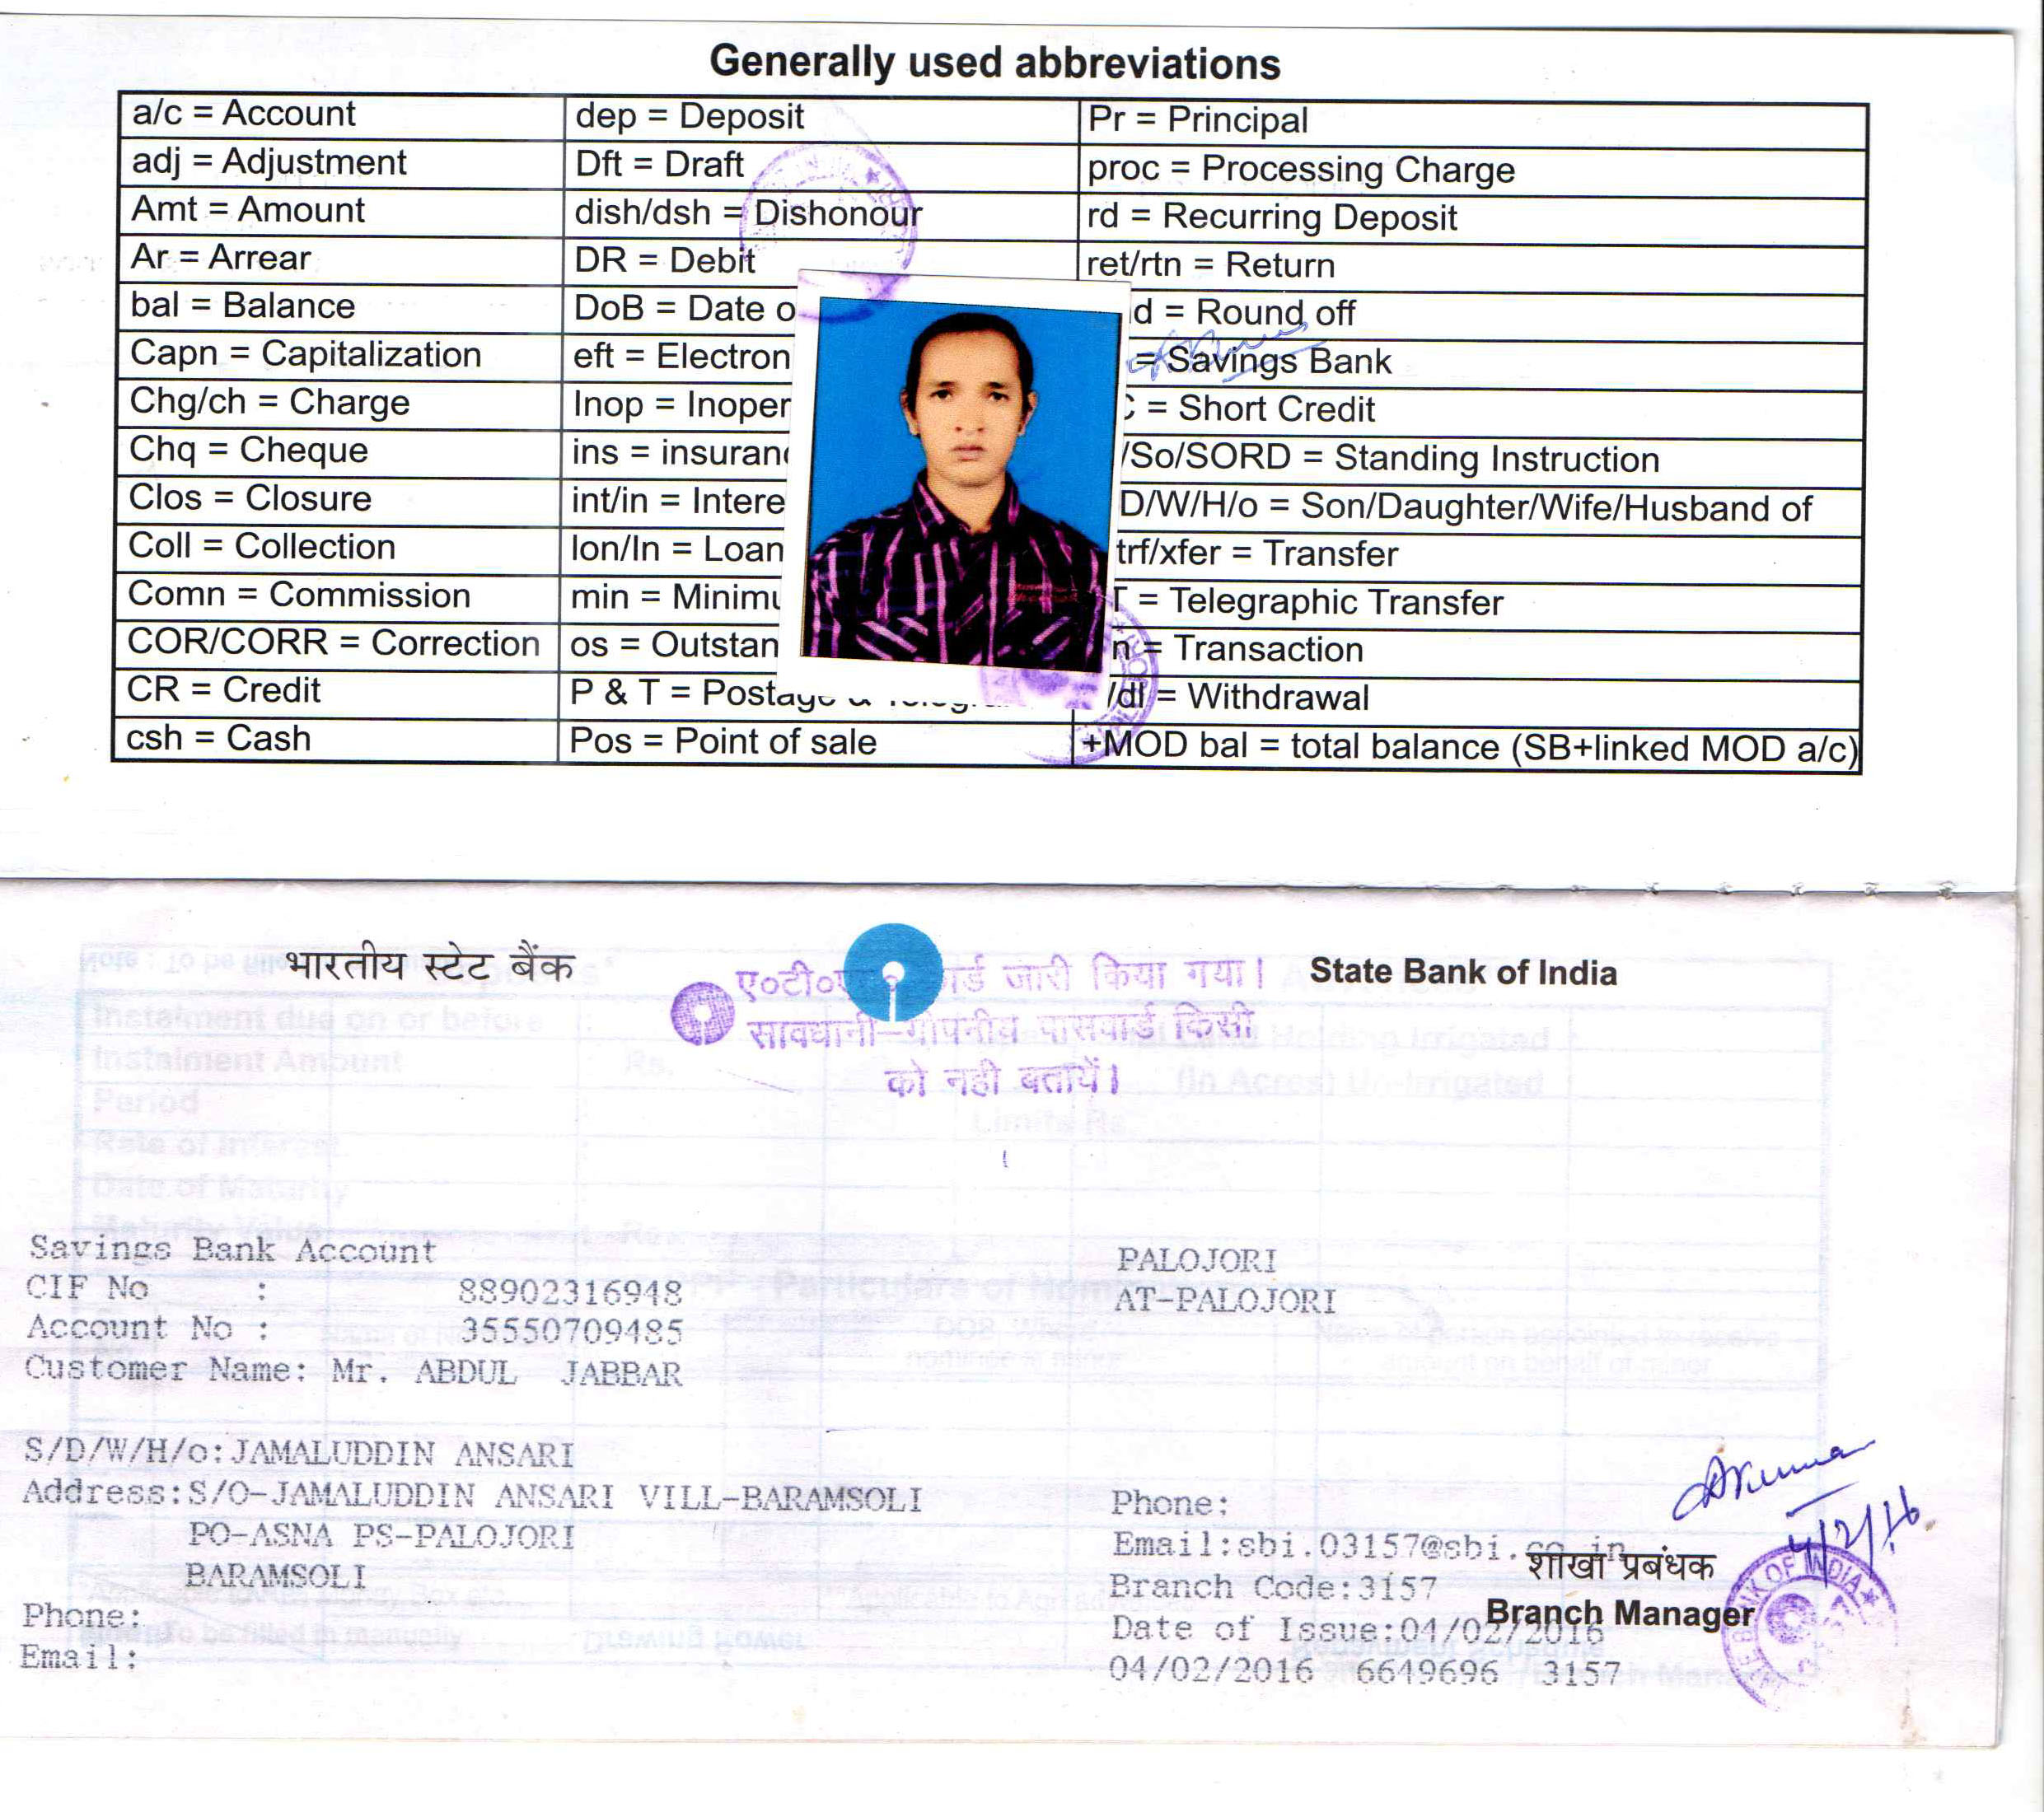 Generally used abbreviations
a/c = Account dep = Deposit Pr = Principal
adj = Adjustment Dft = Draft proc = Processing Charge
Amt = Amount dish/dsh = Dishonour rd = Recurring Deposit
Ar = Arrear DR = Debit ret/rtn = Return
bal = Balance DoB = Date o d = Round off
Capn = Capitalization eft = Electron = Savings Bank
Chg/ch = Charge Inop = Inoper C = Short Credit
Chq = Cheque ins = insuran /So/SORD = Standing Instruction
Clos = Closure int/in = Intere D/W/H/o = Son/Daughter/Wife/Husband of
Coll = Collection lon/ln = Loan trf/xfer = Transfer
Comn = Commission min = Minimu T = Telegraphic Transfer
COR/CORR = Correction os = Outstan n = Transaction
CR = Credit P & T = Postage & /dl = Withdrawal
csh = Cash Pos = Point of sale +MOD bal = total balance (SB+linked MOD a/c)
भारतीय स्टेट बैंक State Bank of India
ए०टी०ए र्ड जारी किया गया।
सावधानी–गोपनीय पासवार्ड किसी
को नही बतायें।
Savings Bank Account PALOJORI
CIF No : 88902316948 AT-PALOJORI
Account No : 35550709485
Customer Name: Mr. ABDUL JABBAR
S/D/W/H/o:JAMALUDDIN ANSARI
Address:S/O-JAMALUDDIN ANSARI VILL-BARAMSOLI Phone:
PO-ASNA PS-PALOJORI Email:sbi.03157@sbi.co.in
BARAMSOLI Branch Code:3157
शाखा प्रबंधक
Branch Manager
Phone: Date of Issue:04/02/2016
Email: 04/02/2016 6649696 3157
4/2/16